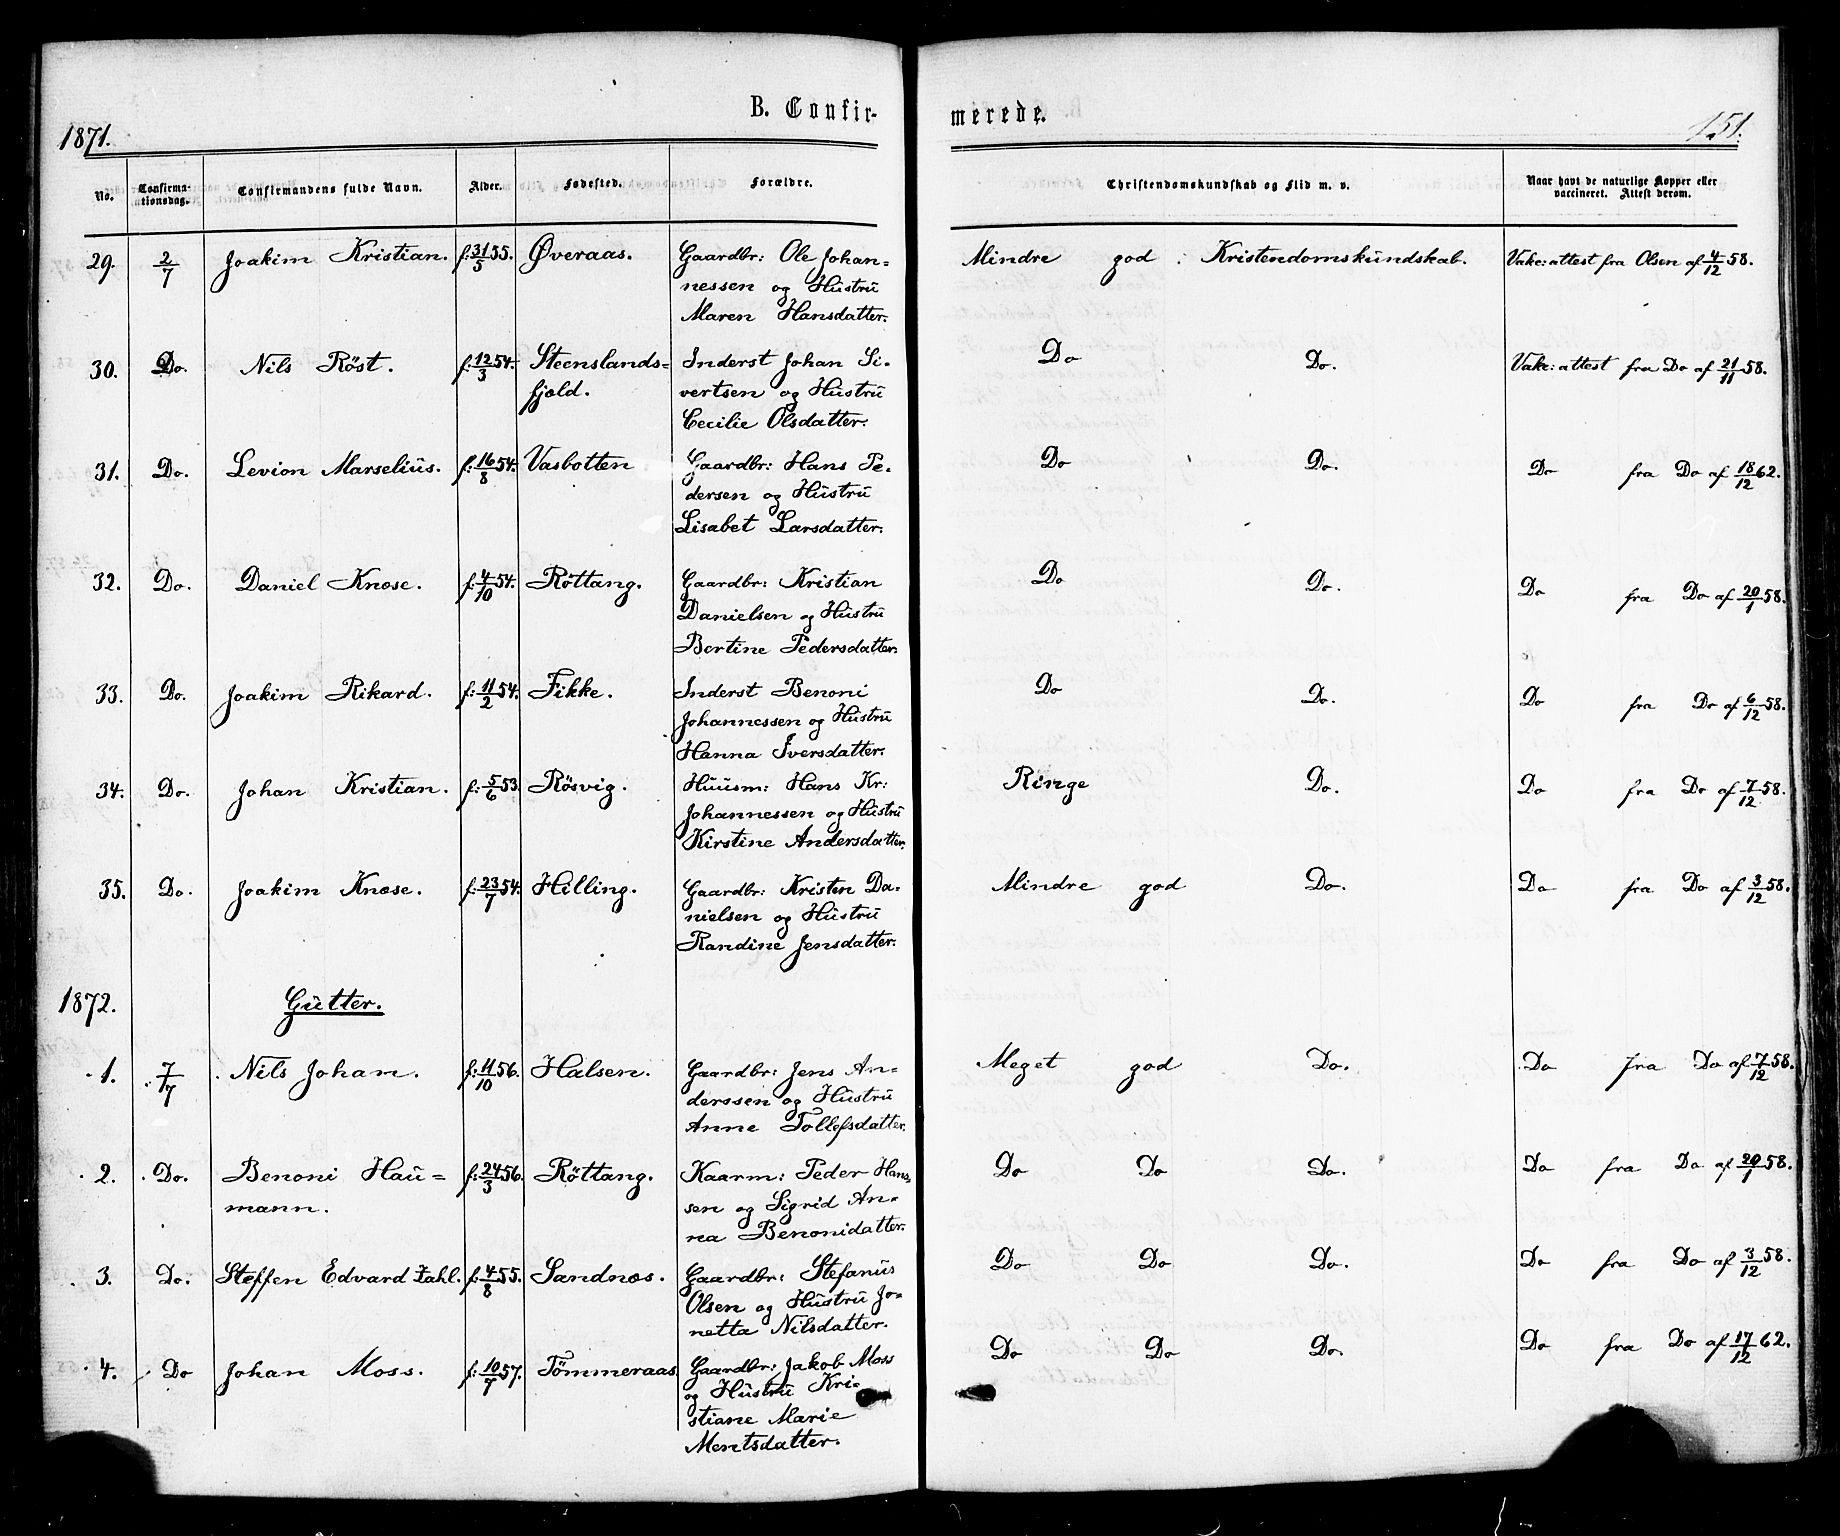 B. Confir-
merede.
1871.
151.
No.
Confirma-
tionsdag.
Confirmandens fulde Navn.
Alder.
Fødested.
Forældre.
Christendomskundskab og Flid m. v.
Naar havt de naturlige Kopper eller
vaccineret. Attest derom.
29. 2/7 Joakim Kristian. f: 31/5 55. Øveraas. Gaardbr: Ole Johan= Mindre god Kristendomskundskab. Vakc: attest fra Olsen af 4/12 58.
nessen og Hustru
Maren Hansdatter.
30. Do. Nils Röst. f: 12/3 54. Steenslands= Inderst Johan Si- Do Do. Vakc: attest fra Do af 21/11 58.
fjæld. vertsen og Hustru
Cecilie Olsdatter.
31. Do. Levion Marselius. f: 16/8 54. Vasbotten Gaardbr: Hans Pe- Do Do. Do fra Do af 18/12 62.
dersen og Hustru
Lisabet Larsdatter.
32. Do. Daniel Knose. f: 4/10 54. Röttang. Gaardbr: Kristian Do Do. Do fra Do af 20/1 58.
Danielsen og Hustru
Bertine Pedersdatter.
33. Do. Joakim Rikard. f: 11/2 54. Fikke. Inderst Benoni Do Do. Do fra Do af 6/12 58.
Johannessen og Hustru
Hanna Iversdatter.
34. Do. Johan Kristian. f: 5/6 53. Rösvig. Huusm: Hans Kr: Ringe Do. Do fra Do af 7/12 58.
Johannessen og Hustru
Kirstine Andersdatter.
35. Do. Joakim Knose. f: 23/7 54. Hilling. Gaardbr: Kristen Da- Mindre god Do. Do fra Do af 3/12 58.
nielsen og Hustru
Randine Jensdatter.
1872. Gutter.
1. 7/7 Nils Johan. f: 11/10 56. Halsen. Gaardbr: Jens An- Meget god Do. Do fra Do af 7/12 58.
derssen og Hustru
Anne Tollefsdatter.
2. Do. Benoni Hau= f: 24/3 56. Röttang. Kaarm: Peder Hans- Do Do Do. Do fra Do af 20/1 58.
mann. sen og Sigrid An-
na Benonidatter.
3. Do. Steffen Edvard Zahl. f: 4/8 55. Sandnæs. Gaardbr: Stefanus Do Do Do. Do fra Do af 3/12 58.
Olsen og Hustru Jo-
netta Nilsdatter.
4. Do Johan Moss. f: 10/7 57. Tömmeraas Gaardbr: Jakob Moss Do Do Do. Do fra Do af 17/12 62.
og Hustru Kri-
stiane Marie
Mentsdatter.